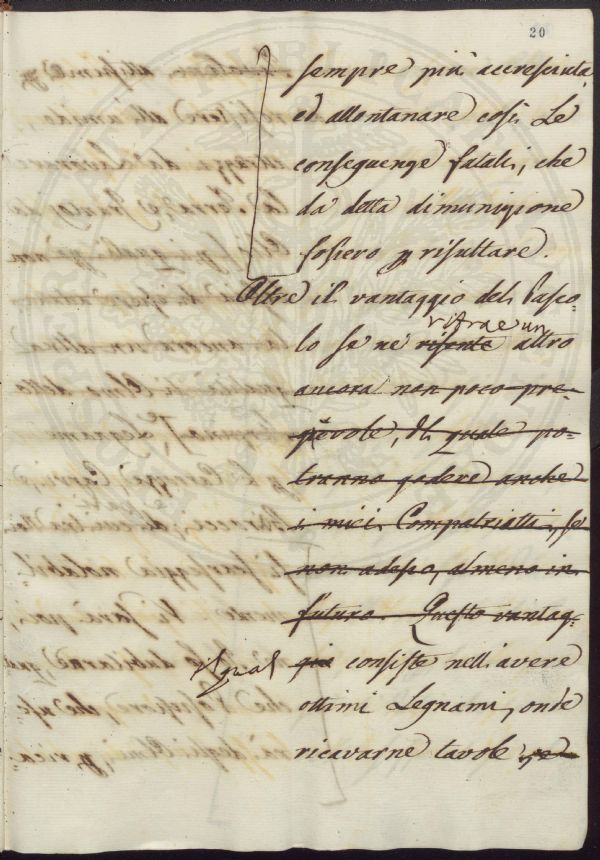 20
sempre più accresciuta,
ed allontanare così Le
conseguenze fatali, che
da detta dimunizione
fossero p risultare.
Oltre il vantaggio del Pasco-
ritrae un
lo se ne risente altro
ancora non poco pre-
gevole, del quale po-
tranno godere anche
i miei Compatriotti, se
non adesso, almeno in
futuro. Questo vantag-
gio consiste nell'avere
il qual
ottimi Legnami, onde
ricavarne tavole